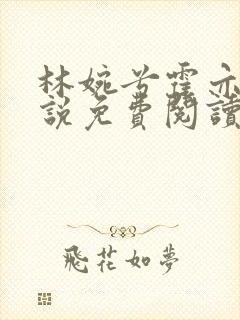 林婉兮霍亦
說免費閱讀
飛花如夢